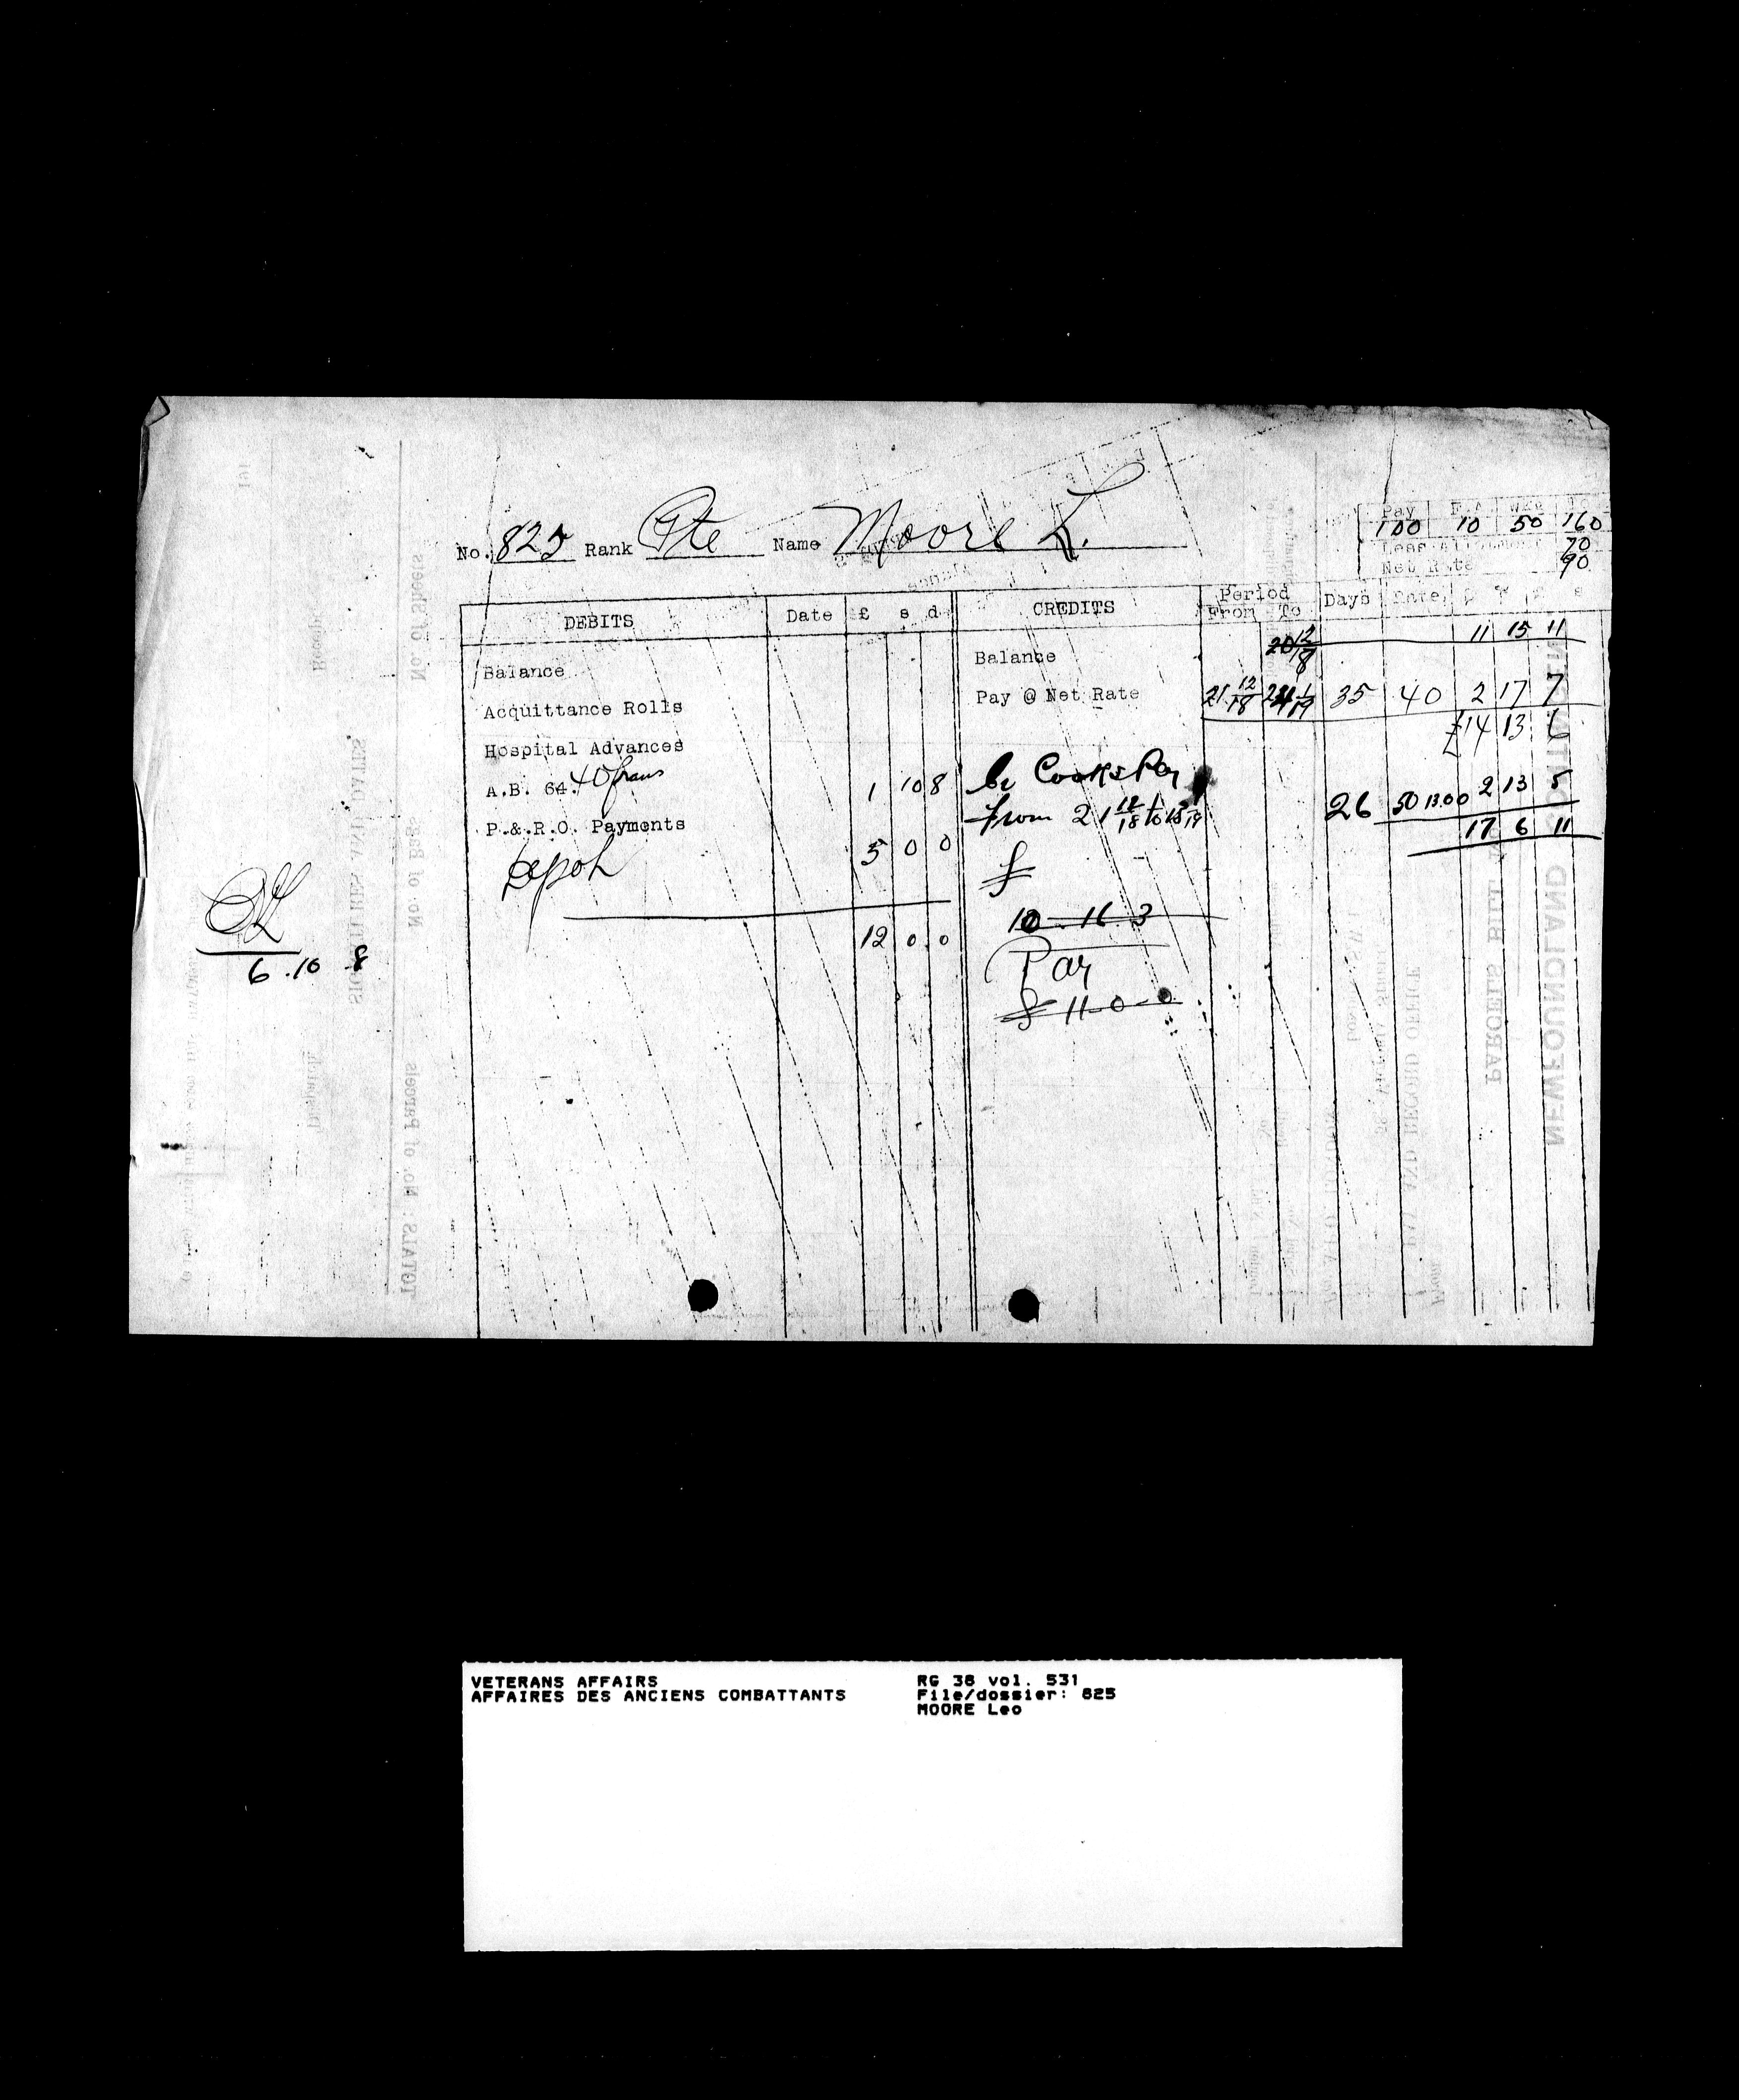 Pay F.A. Wkg To
100 10 50 160
Less Allotment 70
Net Rate 90
No. 825 Rank Pte Name Moore L.
DEBITS Date £ s d CREDITS Period From To Days Rate
Balance
Acquittance Rolls
Hospital Advances
A.B. 64. 40 frans 1 10 8
P.& R.O. Payments
5 0 0
12 0 0
Balance 20 12/18 11 15 11
Pay @ Net Rate 21 12/18 24 1/19 35 40 2 17 7
£14 13 6
by Cooks Pay
from 21 12/18 to 15 1/19 26 50 13.00 2 13 5
17 6 11
£
10 16 3
Pay
£ 11-0-0
6.10 8
No. of Sheets
No. of Bags
TOTALS: No. of Parcels
SIGNATURES AND DATES
Despatch
NEWFOUNDLAND CONTINGENT
PARCELS BILL
PAY AND RECORD OFFICE
VETERANS AFFAIRS RG 38 vol. 531
AFFAIRES DES ANCIENS COMBATTANTS File/dossier: 825
MOORE Leo